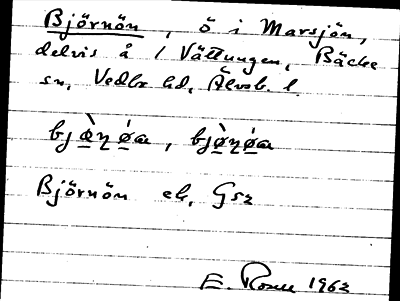 Björnön, ö i Marsjön,
delvis å / Vättungen, Bäcke
sn, Vedbo hd, Älvsb. l.
bjæ̀ṇǿa, bjø̀ṇǿa
Björnön ek, Gsz
E. Rosell 1962